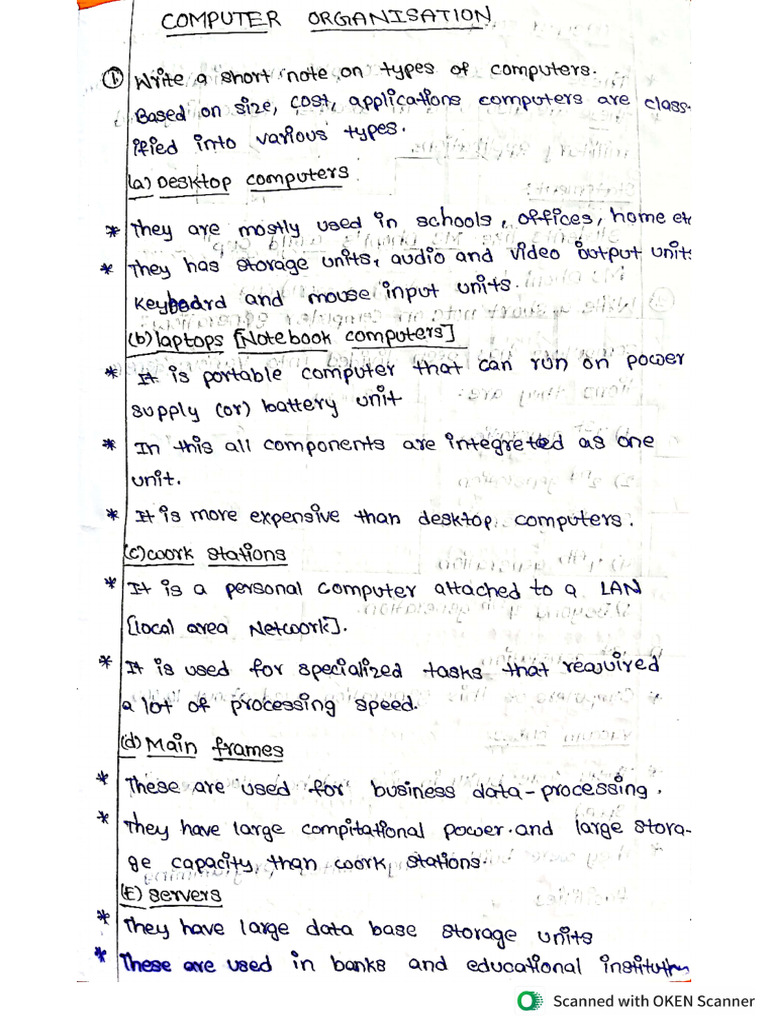 COMPUTER ORGANISATION
① Write a short note on types of computers.
Based on size, cost, applications computers are class-
ified into various types.
(a) Desktop computers
* They are mostly used in schools, offices, home etc
* They has storage units, audio and video output units
Keyboard and mouse input units.
(b) laptops [Notebook computers]
* It is portable computer that can run on power
supply (or) battery unit
* In this all components are integreted as one
unit.
* It is more expensive than desktop computers.
(c) work stations
* It is a personal computer attached to a LAN
[local area Network].
* It is used for specialized tasks that reawired
a lot of processing speed.
(d) Main frames
* These are used for business data-processing.
* They have large compitational power and large stora-
ge capacity than work stations.
(E) servers
* They have large data base storage units
* These are used in banks and educational institutions
Scanned with OKEN Scanner